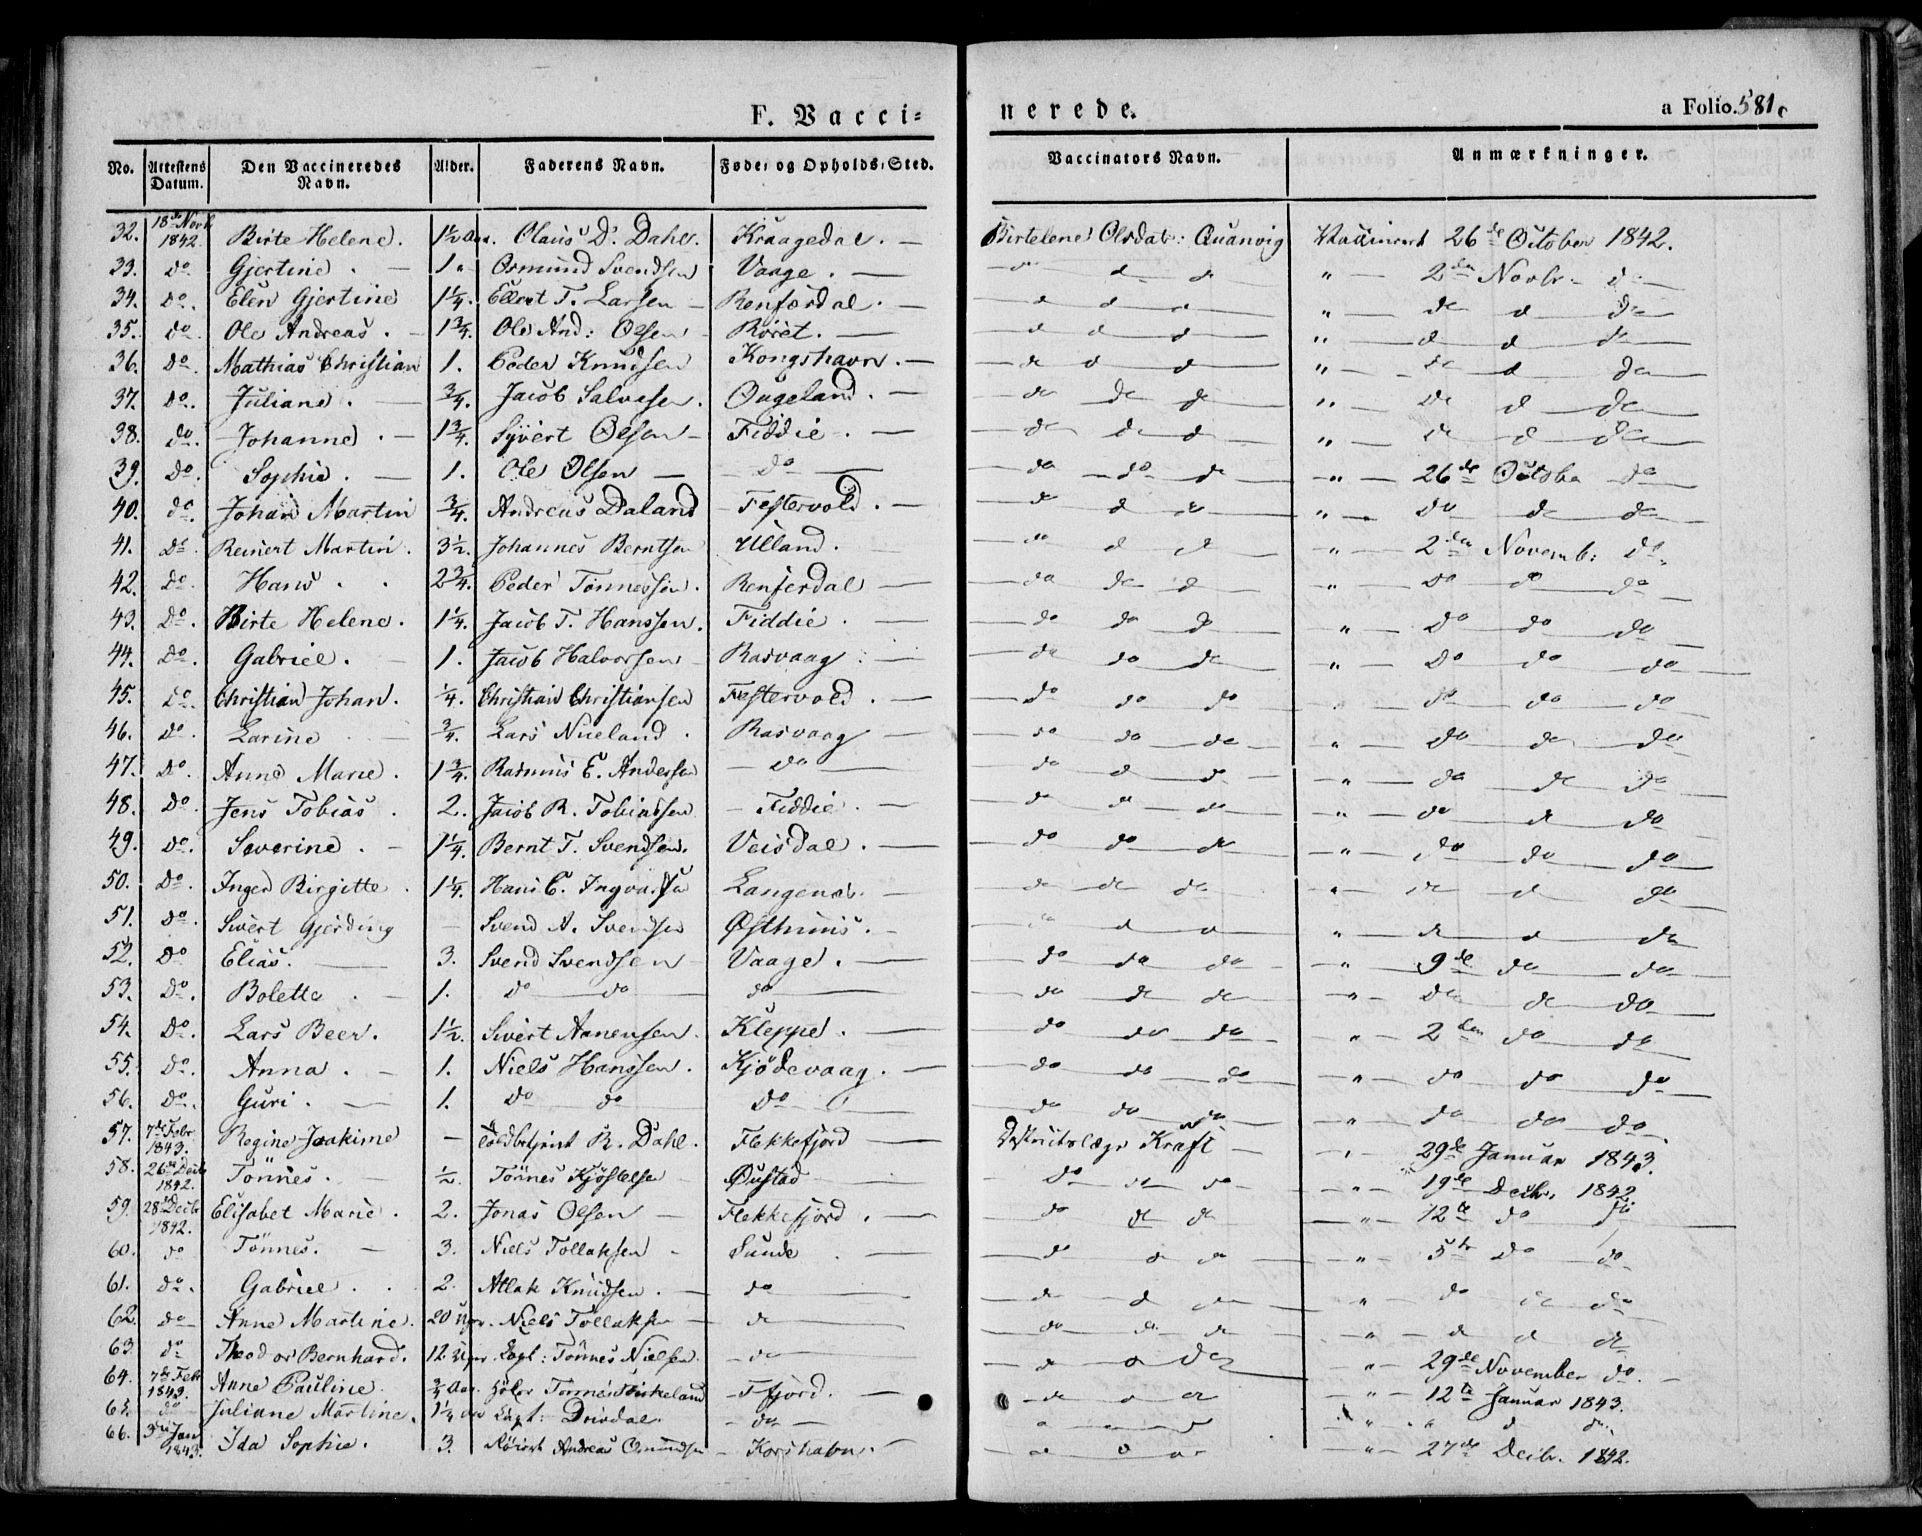 F. Vacci=
nerede.
a Folio. 581
No. Attestens Datum. Den Vaccineredes Navn. Alder. Faderens Navn. Føde- og Opholds-Sted. Vaccinators Navn. Anmærkninger.
32. 18de Novb 1842. Birte Helene. 1½ Aar. Olaus D. Dahl. Kraagedal. Birtelene Olsdat: Quanvig Vaccineret 26de October 1842.
33. do Gjertine. 1 " Osmund Svendsen Vaage. d d d " 2den Novbr. d
34. do. Elen Gjertine 1¼. Ellert T. Larsen Renførdal. d d d " do d do
35. do. Ole Andreas. 1¾. Ole And: Olsen Røiet. d d d " d d do
36. do. Mathias Christian 1. Peder Knudsen Kongshavn. do d d " do d do
37. do. Juliane. ¾. Jacob Salvesen. Ougeland. do do do " do d do
38. do. Johanne. 1¾. Syvert Olsen Fiddie. do do d " do d do
39. do. Sophie. 1. Ole Olsen do do do do " 26de Octobr do
40. do. Johan Martin ¾. Andreas Daland Festervold. do d do " do do do
41. do. Reinert Martin. 3½. Johannes Berntsen Ulland. do d d " 2den Novemb: do
42. do. Hans. 2¾. Peder Tønnessen. Renferdal do do d " do do do
43. do. Birte Helene. 1¼. Jacob T. Hanssen. Fiddie. do do do " do do do
44. do. Gabriel. 1. Jacob Halvorsen Rasvaag. do do do " do do do
45. do. Christian Johan. ¼. Christian Christiansen Festervold. do do do " do do do
46. do. Larine ¾. Lars Nueland. Rasvaag do do do " do do do
47. do. Anne Marie. 1¾. Rasmus E. Andersen do do d do " do do do
48. do. Jens Tobias. 2. Jacob R. Tobiassen Fiddie. do do do " do d do
49. do. Severine. 1¼. Bernt T. Svendsen. Veisdal. do do do " do do do
50. do. Inger Birgitte. 1¼. Hans C. Langenes. do do do " do d do
51. do. Sivert Gjerding Svend A. Svendsen Østhuus. d d " do d do
52. do Elias. 3. Svend Svendsen Vaage. do do do " 9de do do
53. do. Bolette. 1. do do do do do do " do do do
54. do. Lars Beer. 1½. Sivert Aanensen. Kleppe. do do do " 2den do do
55. do. Anna. 1. Niels Hanssen. Kjødevaag. do do do " do do do
56. do. Guri. 1. do do do do do do " do do do
57. 7de Febr 1843. Regine Joakime Toldbetjent R. Dahl. Flekkefjord Districtslæge Kraft " 29de Januar 1843.
58. 26de Decbr 1842. Tønnes. ½. Tønnes Øustad do do do " 19de Decbr. 1842.
59. 28de Decbr 1842. Elisabet Marie. 2. Jonas Olsen Flekkefjord. do do do " 12te do do
60. do Tønnes. 3. Niels Tollaksen Sunde do d do " 5te do do
61. do. Gabriel. 2. Atlak Knudsen. do do d do " do do do
62. do Anne Martine. 20 Uger. Niels Tollaksen do do do do " d d do
63. do Theodor Bernhard. 12 Uger Capt: Tønnes Nielsen. do d d do " 29de November do.
64. 7de Febr 1843. Anne Pauline. ¾ Aar. Tønnes Birkeland Ffjord. do d do " 12te Januar 1843.
65. do Juliane Martine. 1¼ Aar Capt: Drivdal. do d d d " " d do.
66. 3die Jan 1843. Ida Sophie. 3. Andreas Omundsen Korshavn. d d do " 27de Decbr. 1842.